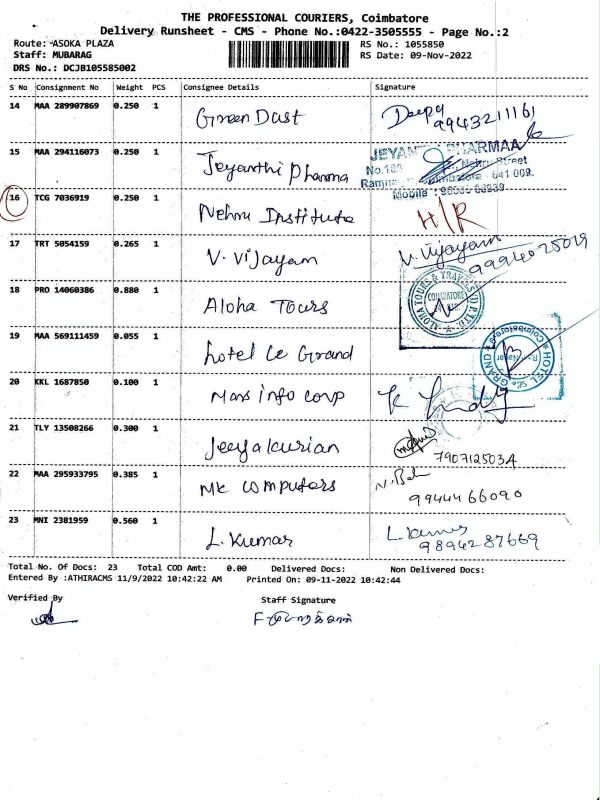 THE PROFESSIONAL COURIERS, Coimbatore
Delivery Runsheet - CMS - Phone No.:0422-3505555 - Page No.:2
Route: ASOKA PLAZA
RS No.: 1055850
Staff: MUBARAG
RS Date: 09-Nov-2022
DRS No.: DCJB105585002
S No Consignment No Weight PCS Consignee Details Signature
14 MAA 289907869 0.250 1 Green Dast Deepa 9943211161
15 MAA 294116073 0.250 1 Jeyanthi Pharma
No.183 Nehru Street
641 009.
Mobile :
16 TCG 7036919 0.250 1 Nehru Institute H/R
17 TRT 5054159 0.265 1 V. Vijayam V. Vijayam
18 PRO 14060386 0.880 1 Aloha Tours
ALOHA TOURS & TRAVELS COIMBATORE
19 MAA 569111459 0.055 1 hotel Le Grand
HOTEL GRAND Coimbatore
20 KKL 1687850 0.100 1 Mars info corp
21 TLY 13508266 0.300 1 Jeeyakurian 7907125034
22 MAA 295933795 0.385 1 MK Computers 9944466090
23 MNI 2381959 0.560 1 L. Kumar L. Kumar 9894287669
Total No. Of Docs: 23 Total COD Amt: 0.00 Delivered Docs: Non Delivered Docs:
Entered By :ATHIRACMS 11/9/2022 10:42:22 AM Printed On: 09-11-2022 10:42:44
Verified By Staff Signature